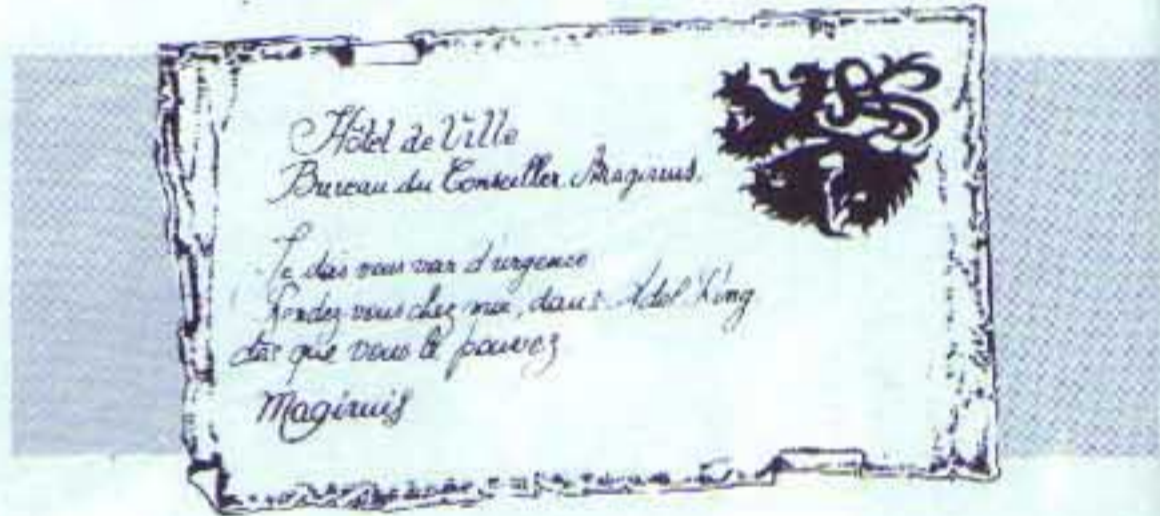 Hôtel de Ville
Bureau du Conseiller Magirius.
Je dois vous voir d'urgence
Rendez vous chez moi, dans Adel Ring
dès que vous le pouvez
Magirius